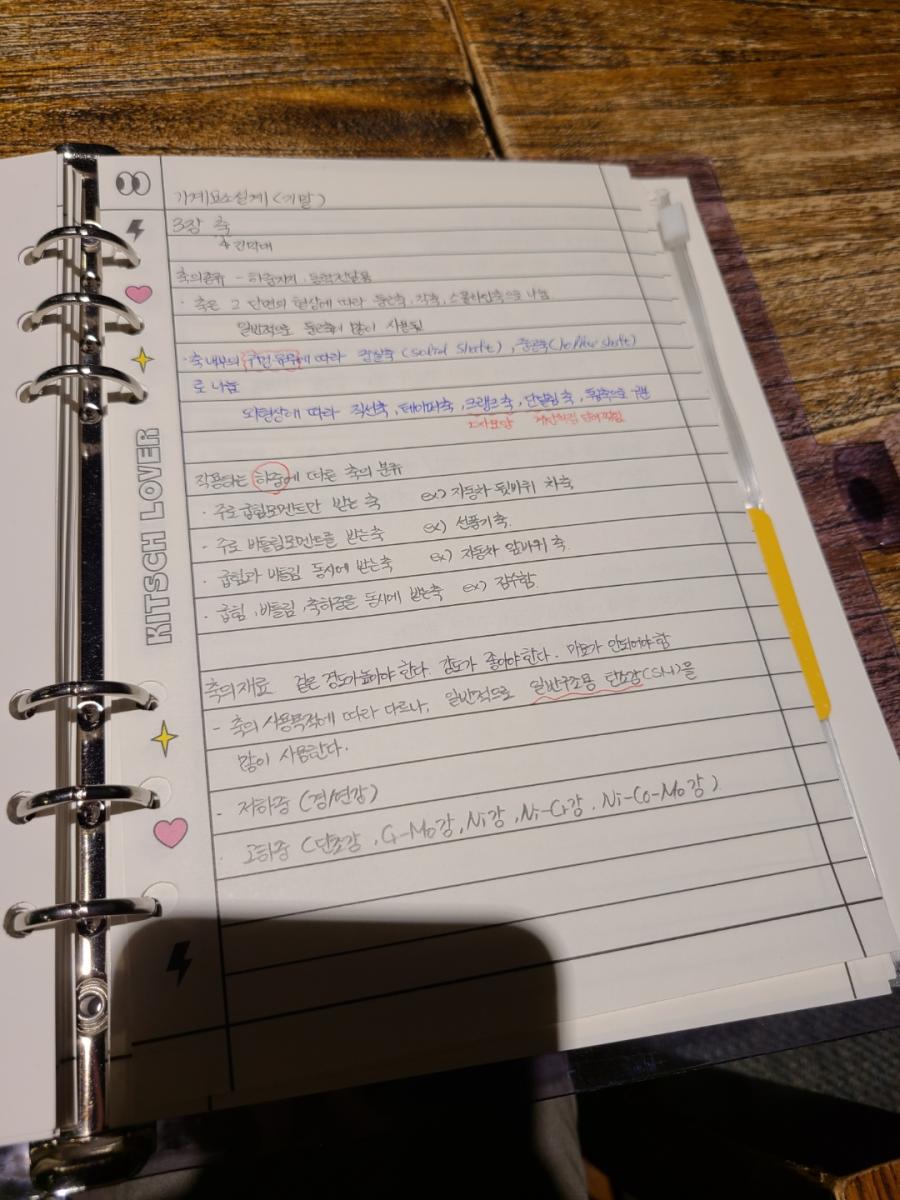 기계요소설계 (기말)
3장 축
긴막대
축의종류 - 하중지지, 동력전달용
· 축은 그 단면의 형상에 따라 둥근축, 각축, 스플라인축으로 나눔
일반적으로 둥근축이 많이 사용됨
· 축 내부의 구멍 유무에 따라 중실축 (solid shaft), 중공축 (hollow shaft)
로 나눔
외형상에 따라 직선축, 테이퍼축, 크랭크축, 단달림 축, 플랜지축으로 구분
ㄹ자 모양
작용하는 하중에 따른 축의 분류
· 주로 굽힘모멘트만 받는 축 ex) 자동차 뒷바퀴 차축
· 주로 비틀림모멘트를 받는축 ex) 선풍기축.
· 굽힘과 비틀림 동시에 받는축 ex) 자동차 앞바퀴 축.
· 굽힘, 비틀림, 축하중을 동시에 받는축 ex) 잠수함.
축의재료 겉은 경도가높아야 한다. 강도가 좋아야한다. 마모가 안되어야 함
- 축의 사용목적에 따라 다르나, 일반적으로 일반구조용 탄소강(SM)을
많이 사용한다.
· 저하중 (경/연강)
· 고하중 (탄소강, Cr-Mo강, Ni강, Ni-Cr강, Ni-Co-Mo강)
KITSCH LOVER